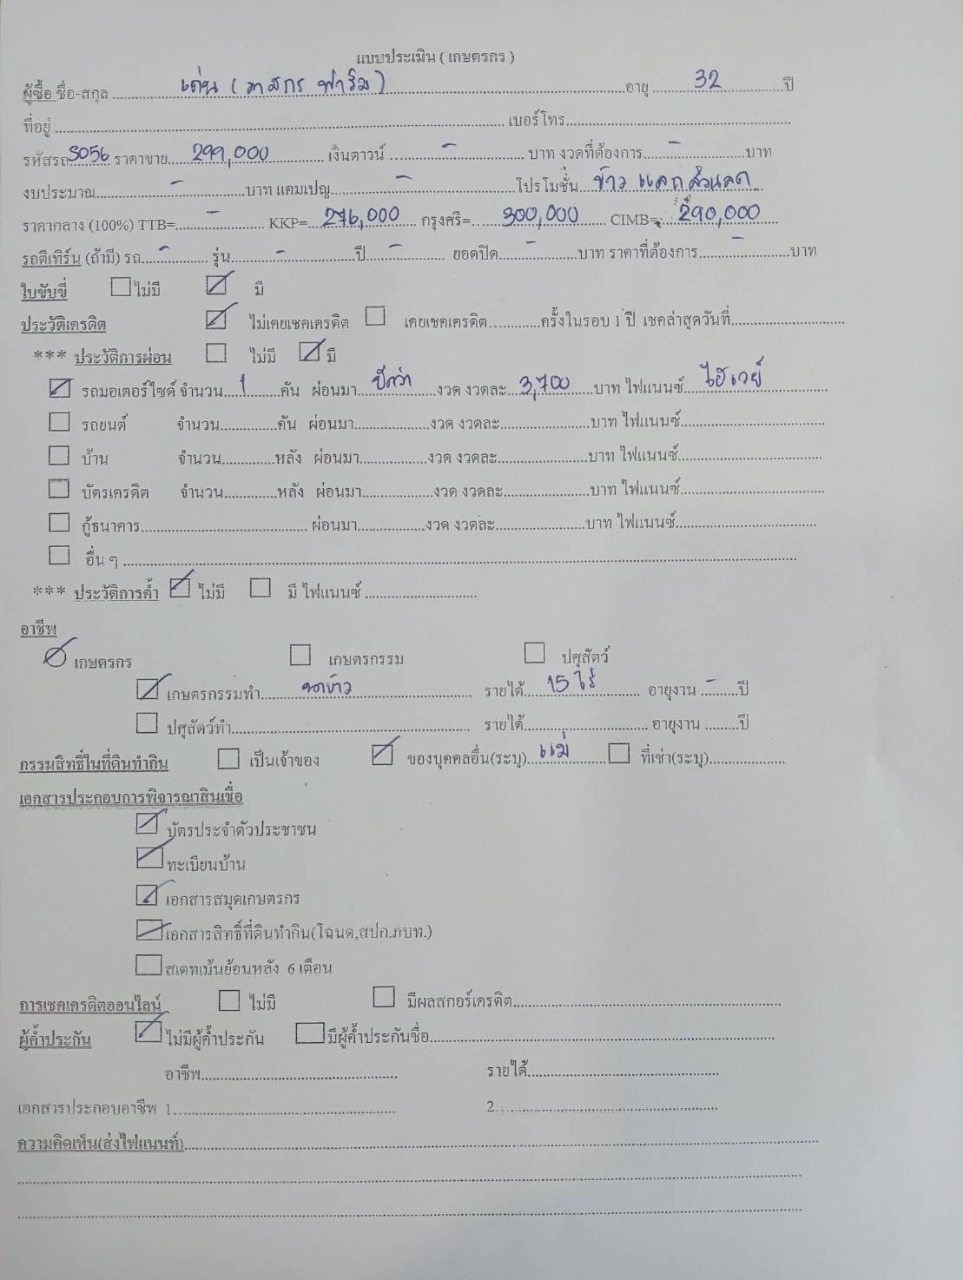 แบบประเมิน ( เกษตรกร )
ผู้ซื้อ ชื่อ-สกุล .......... เด่น ( ฟาร์ม ) .......... อายุ .......... 32 .......... ปี
ที่อยู่ .......... เบอร์โทร ..........
รหัสรถ S056 ราคาขาย..... 299,000 .......... เงินดาวน์ ..... - .......... บาท งวดที่ต้องการ..... - .......... บาท
งบประมาณ.......... - .......... บาท แคมเปญ.......... - .......... โปรโมชั่น ข้าว แลก ส่วนลด
ราคากลาง (100%) TTB=..... - .......... KKP= 276,000 ..... กรุงศรี=..... 300,000 ..... CIMB= 290,000 .....
รถตีเทิร์น (ถ้ามี) รถ.... - ..... รุ่น..... - ..........ปี..... - .......... ยอดปิด..... - ..........บาท ราคาที่ต้องการ..... - ..........บาท
ใบขับขี่ ☐ ไม่มี ☑ มี
ประวัติเครดิต ☑ ไม่เคยเชคเครดิต ☐ เคยเชคเครดิต............ครั้งในรอบ 1 ปี เชคล่าสุดวันที่..........
*** ประวัติการผ่อน ☐ ไม่มี ☑ มี
☑ รถมอเตอร์ไซด์ จำนวน.... 1 ....คัน ผ่อนมา.... ปีกว่า ....งวด งวดละ.. 3,700 ....บาท ไฟแนนซ์.. ไฮเวย์ ..........
☐ รถยนต์ จำนวน............คัน ผ่อนมา............งวด งวดละ............บาท ไฟแนนซ์..........
☐ บ้าน จำนวน............หลัง ผ่อนมา............งวด งวดละ............บาท ไฟแนนซ์..........
☐ บัตรเครดิต จำนวน............หลัง ผ่อนมา............งวด งวดละ............บาท ไฟแนนซ์..........
☐ กู้ธนาคาร.......... ผ่อนมา............งวด งวดละ............บาท ไฟแนนซ์..........
☐ อื่น ๆ ..........
*** ประวัติการค้ำ ☑ ไม่มี ☐ มี ไฟแนนซ์ ..........
อาชีพ
☑ เกษตรกร ☐ เกษตรกรรม ☐ ปศุสัตว์
☑ เกษตรกรรมทำ.......... ข้าว .......... รายได้..... 15 ไร่ .......... อายุงาน .. - ....ปี
☐ ปศุสัตว์ทำ.......... รายได้.......... อายุงาน ........ปี
กรรมสิทธิ์ในที่ดินทำกิน ☐ เป็นเจ้าของ ☑ ของบุคคลอื่น(ระบุ).. แม่ .... ☐ ที่เช่า(ระบุ)..........
เอกสารประกอบการพิจารณาสินเชื่อ
☑ บัตรประจำตัวประชาชน
☑ ทะเบียนบ้าน
☑ เอกสารสมุดเกษตรกร
☑ เอกสารสิทธิ์ที่ดินทำกิน(โฉนด,สปก.ภบท.)
☐ สเตทเม้นย้อนหลัง 6 เดือน
การเชคเครดิตออนไลน์ ☐ ไม่มี ☐ มีผลสกอร์เครดิต..........
ผู้ค้ำประกัน ☑ ไม่มีผู้ค้ำประกัน ☐ มีผู้ค้ำประกันชื่อ..........
อาชีพ.......... รายได้..........
เอกสารประกอบอาชีพ 1.......... 2..........
ความคิดเห็น(ส่งไฟแนนท์)..........